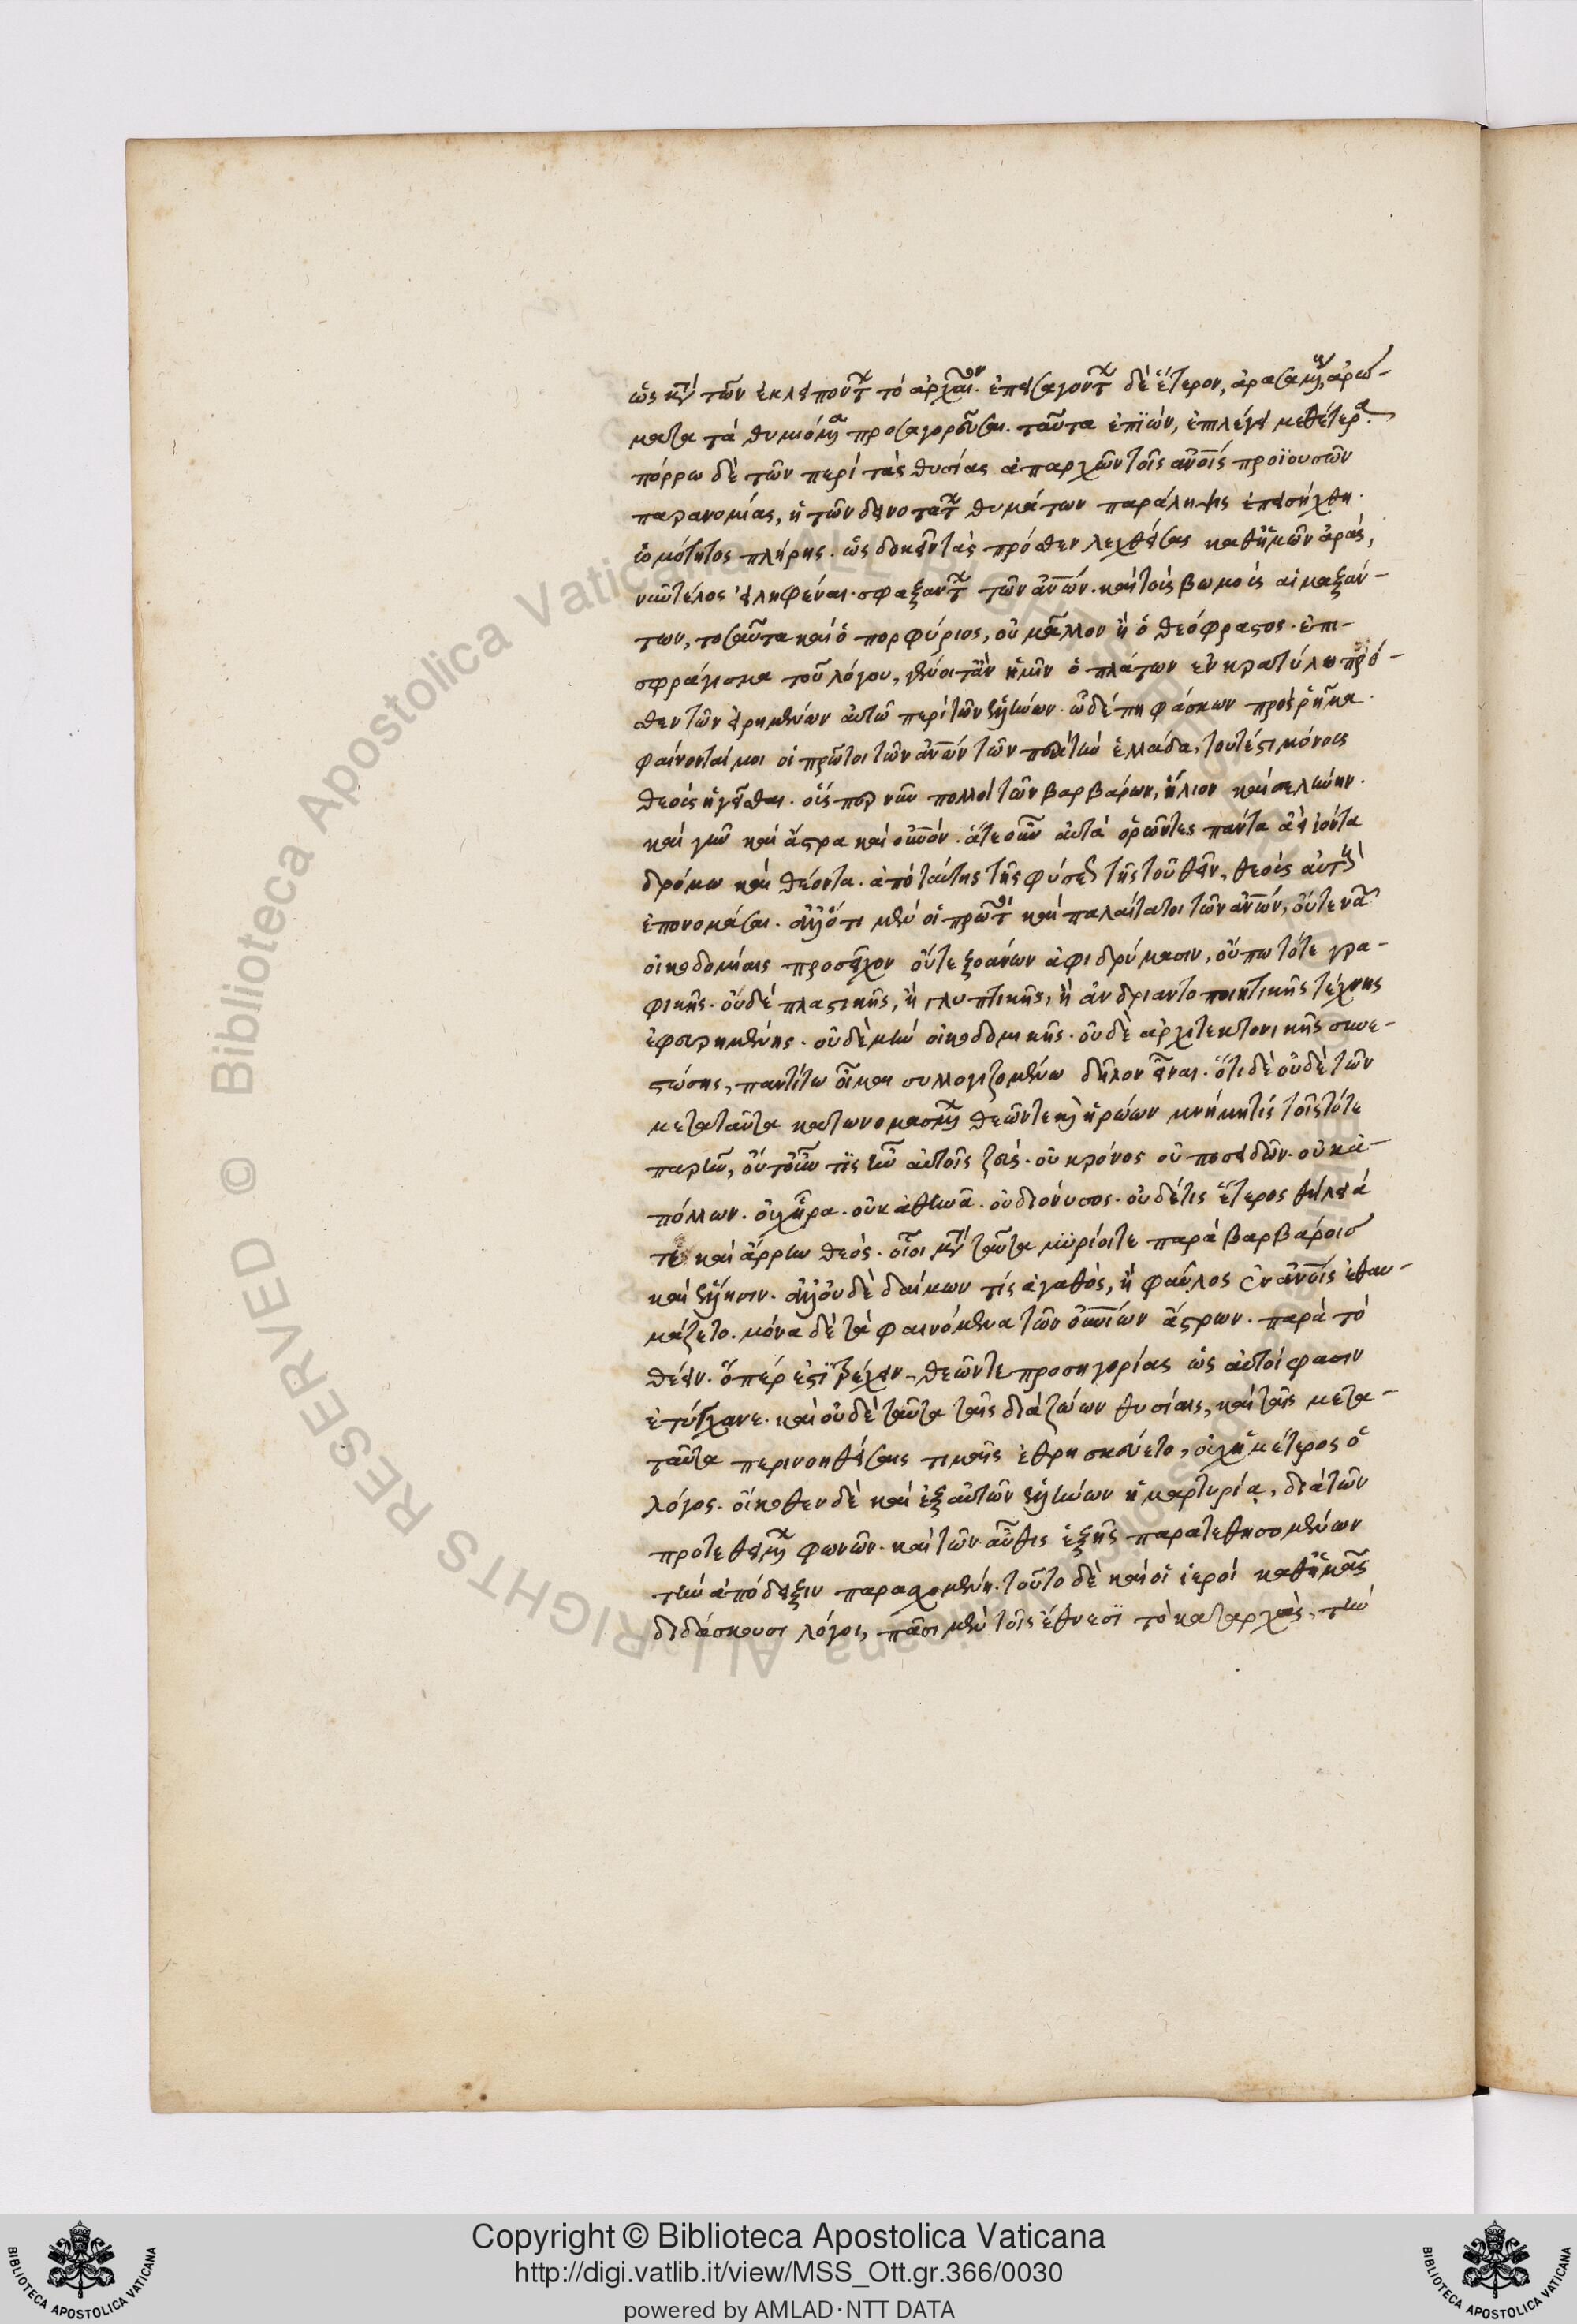 ὡς κατὰ τῶν ἐκλειπόντων τὸ ἀρχαῖον. ἐπεισαγόντων δὲ ἕτερον, ἀρασαμένης, ἀρώ-
ματα τὰ θυμιώμενα προσαγορεῦσαι. ταῦτα ἐπιὼν, ἐπιλέγει μεθέτερα.
πόρρω δὲ τῶν περὶ τὰς θυσίας ἀπαρχῶν τοῖς ἀνοις προϊουσῶν
παρανομίας, ἡ τῶν δεινοτάτων θυμάτων παράληψις ἐπεισήχθη.
ὠμότητος πλήρης. ὡς δοκεῖν τὰς πρόσθεν λεχθείσας καθ' ἡμῶν ἀρὰς,
νῦν τέλος εἰληφέναι. σφαξάντων τῶν ἀνων. καὶ τοὺς βωμοὺς αἱμαξάν-
των, τοσαῦτα καὶ ὁ πορφύριος, οὐ μᾶλλον ἢ ὁ θεόφραστος. ἐπι-
σφράγισμα τοῦ λόγου, γένοιτ' ἂν ἡμῖν ὁ πλάτων ἐν κρατύλω πρό-
σθεν τῶν εἰρημένων αὐτῶ περὶ τῶν ἑλλήνων. ὧδέ πη φάσκων προσρῆμα.
φαίνονταί μοι οἱ πρῶτοι τῶν ἀνων τῶν περὶ τὴν ἑλλάδα, τούτους μόνους
θεοὺς ἡγεῖσθαι. οὕσπερ νῦν πολλοὶ τῶν βαρβάρων, ἥλιον καὶ σελήνην.
καὶ γῆν καὶ ἄστρα καὶ οὐνόν. ἅτε οὖν αὐτὰ ὁρῶντες πάντα ἀεὶ ἰόντα
δρόμω καὶ θέοντα. ἀπὸ ταύτης τῆς φύσεως τῆς τοῦ θεῖν, θεοὺς αὐτοὺς
ἐπονομάσαι. ἀλλ' ὅτι μὲν οἱ πρῶτοι καὶ παλαίτατοι τῶν ἀνων, οὔτε ναῶν
οἰκοδομίαις προσεῖχον οὔτε ξοάνων ἀφιδρύμασιν, οὔπω τότε γρα-
φικῆς. οὐδὲ πλαστικῆς, ἢ γλυπτικῆς, ἢ ἀνδριαντοποιητικῆς τέχνης
ἐφευρημένης. οὐδὲ μὴν οἰκοδομικῆς. οὐδὲ ἀρχιτεκτονικῆς συνε-
στώσης, παντί τω οἶμαι συλλογιζομένω δῆλον εἶναι. ὅτι δὲ οὐδὲ τῶν
μετὰ ταῦτα κατωνομασμένων θεῶν τε καὶ ἡρώων μνήμη τις τοῖς τότε
παρῆν, οὔτ' οὖν τις ἦν αὐτοῖς ζεὺς. οὐ κρόνος οὐ ποσειδῶν. οὐκ ἀ-
πόλλων. οὐχ ἥρα. οὐκ ἀθηνᾶ. οὐ διόνυσος. οὐδέ τις ἕτερος θήλειά
τε καὶ ἄρρην θεός. οἷοι μετὰ ταῦτα μυρίοι τε παρὰ βαρβάροις
καὶ ἕλλησιν. ἀλλ' οὐδὲ δαίμων τίς ἀγαθὸς, ἢ φαῦλος ἐν ἀνοις ἐθαυ-
μάζετο. μόνα δὲ τὰ φαινόμενα τῶν οὐνίων ἄστρων. παρὰ τὸ
θέειν. ὅπέρ ἐστὶ τρέχειν. θεῶν τε προσηγορίας ὡς αὐτοί φασιν
ἐτύγχανε. καὶ οὐδὲ ταῦτα ταῖς διὰ ζώων θυσίαις, καὶ ταῖς μετα-
ταῦτα περινοηθείσαις τιμαῖς ἐθρησκεύετο, οὐχ ἡμέτερος ὁ
λόγος. οἴκοθεν δὲ καὶ ἐξ αὐτῶν ἑλλήνων ἡ μαρτυρία, διὰ τῶν
προτεθειμένων φωνῶν. καὶ τῶν αὖθις ἑξῆς παρατεθησομένων
τὴν ἀπόδειξιν παρασχομένη. τοῦτο δὲ καὶ οἱ ἱεροὶ καθ' ἡμᾶς
διδάσκουσι λόγοι, πᾶσι μὲν τοῖς ἔθνεσι τὸ καταρχὰς, τὴν
Copyright © Biblioteca Apostolica Vaticana
http://digi.vatlib.it/view/MSS_Ott.gr.366/0030
powered by AMLAD·NTT DATA
BIBLIOTECA APOSTOLICA VATICANA
BIBLIOTECA APOSTOLICA VATICANA
© Biblioteca Apostolica Vaticana ALL RIGHTS RESERVED